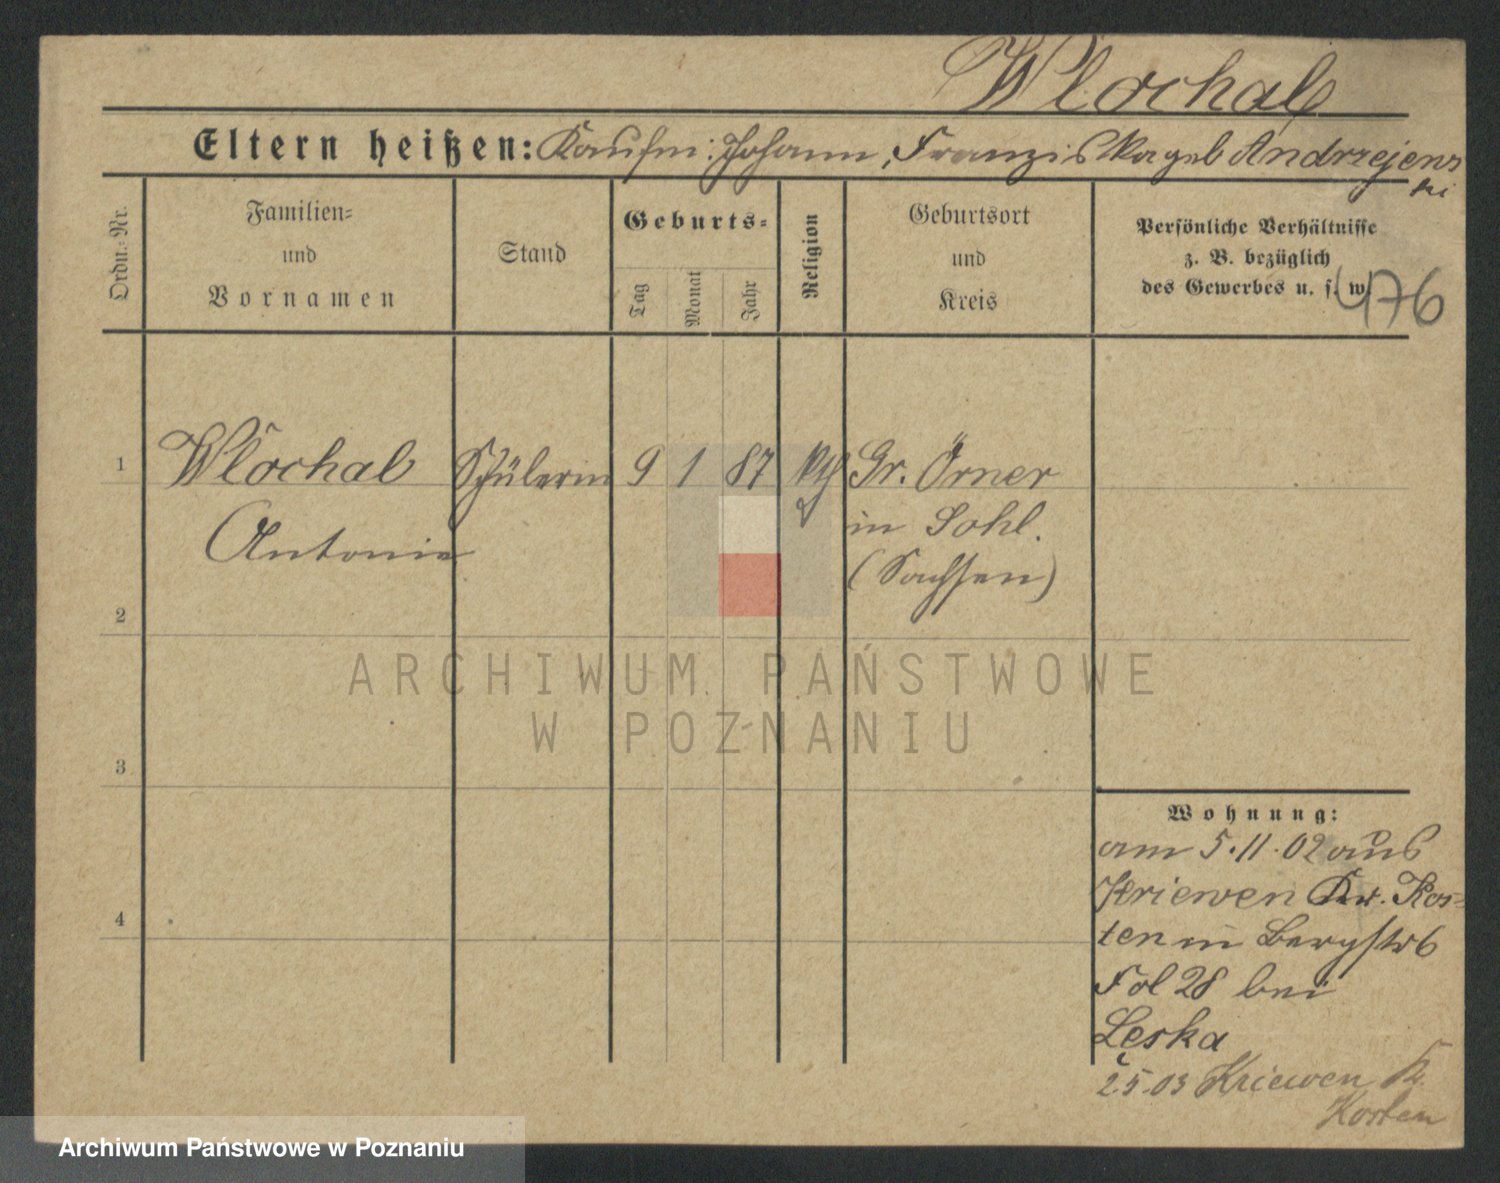 Wlochal
Eltern heißen: Kaufm: Johann, Franziska geb Andrzejews
ki
Ordn.-Nr.
Familien-
und
Vornamen
Stand
Geburts-
Tag
Monat
Jahr
Religion
Geburtsort
und
Kreis
Persönliche Verhältnisse
z. B. bezüglich
des Gewerbes u. s. w.
476
1
Wlochal Schülerin 9 1 87 kth Gr. Örner
in Sohl.
Antonie
(Sachsen)
2
ARCHIWUM PAŃSTWOWE
W POZNANIU
3
Wohnung:
am 5.11.02 aus
Kriewen Kr. Kos-
4
ten in Bergstr 6
Fol 28 bei
Leska
2.5.03 Kriewen Kr.
Kosten
Archiwum Państwowe w Poznaniu